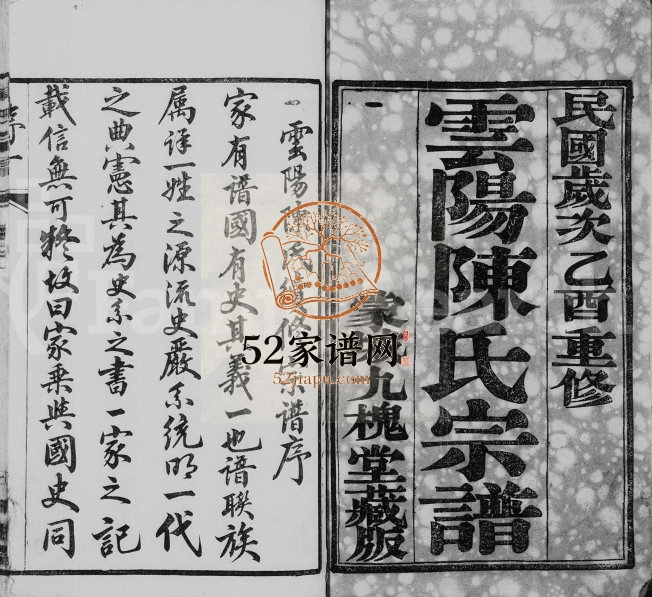 民國歲次乙酉重修
雲陽陳氏宗譜
九槐堂藏版
雲陽陳氏 宗谱序
家有谱國有史其義一也谱聯族
属详一姓之源流史嚴系统明一代
之典憲其為史系之書一家之記
載信無可疑故曰家乘與國史同
52家谱网
52jiapu.com